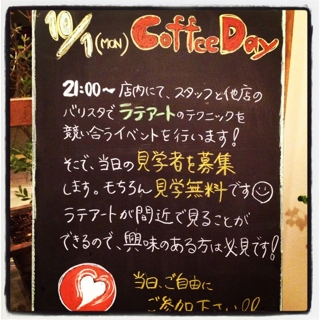 10/1(MON) Coffee Day
21:00〜 店内にて、スタッフと他店の
バリスタで ラテアートのテクニックを
競い合うイベントを行います!
そこで、当日の 見学者を募集
します。もちろん 見学無料です☺
ラテアートが間近で見ることが
できるので、興味のある方は必見です!
当日、ご自由に
ご参加下さい!!